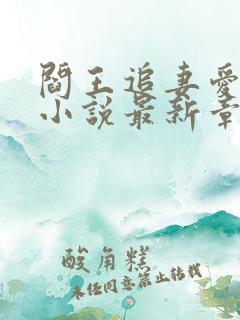 閻王追妻愛
小說最新章
酸角糕
未经同意禁止转载